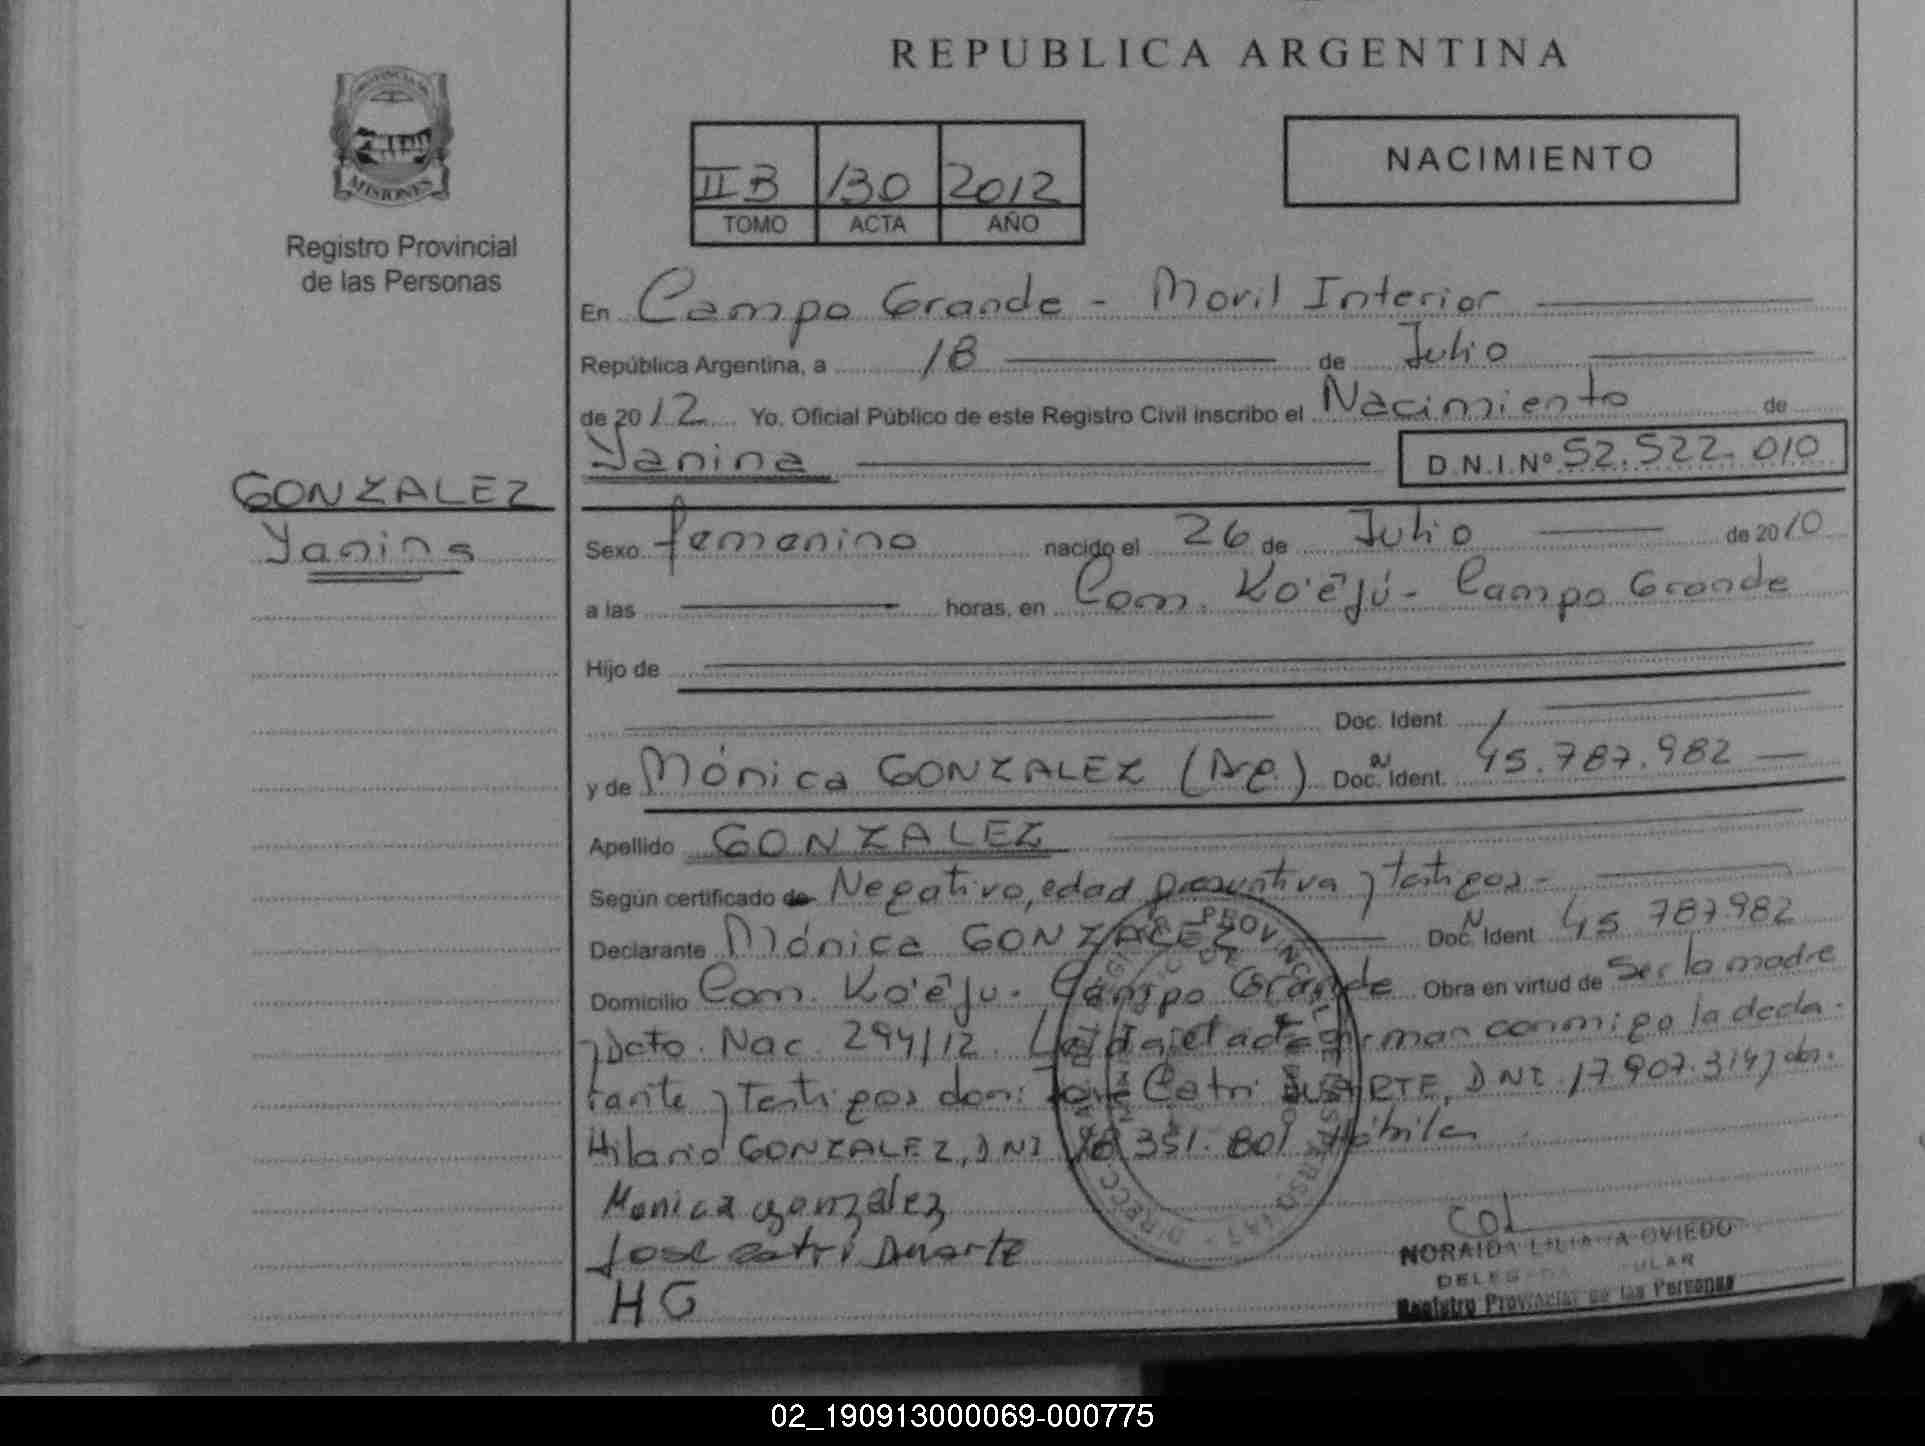 REPUBLICA ARGENTINA
MISIONES
Registro Provincial
de las Personas
II B 130 2012
TOMO ACTA AÑO
NACIMIENTO
En Campo Grande - Movil Interior
República Argentina, a 18 de Julio
de 2012 Yo, Oficial Público de este Registro Civil inscribo el Nacimiento de
Yanina D.N.I.Nº 52.522.010
GONZALEZ
Yanina
Sexo femenino nacido el 26 de Julio de 2010
a las horas, en Com. Ko'ẽjú - Campo Grande
Hijo de
Doc. Ident.
y de Mónica GONZALEZ (Arg.) Doc. Ident. 45.787.982
Apellido GONZALEZ
Según certificado de Negativo, edad presuntiva y testigos -
Declarante Mónica GONZALEZ Doc. Ident 45 787982
Domicilio Com. Ko'ẽju - Campo Grande Obra en virtud de ser la madre
y Dcto. Nac. 294/12. Leída el acta firman conmigo la decla-
rante y testigos don: José Catri DUARTE, DNI 17.907.314 y don.
Hilario GONZALEZ, DNI 18 351.801 Hábiles
Monica gonzalez
Jose catri Duarte
H G
NORAIDA LILIANA OVIEDO
Registro Provincial de las Personas
02_190913000069-000775